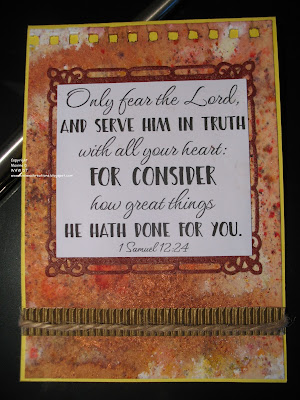 Only fear the Lord,
AND SERVE HIM IN TRUTH
with all your heart:
FOR CONSIDER
how great things
HE HATH DONE FOR YOU.
1 Samuel 12:24
Copyright